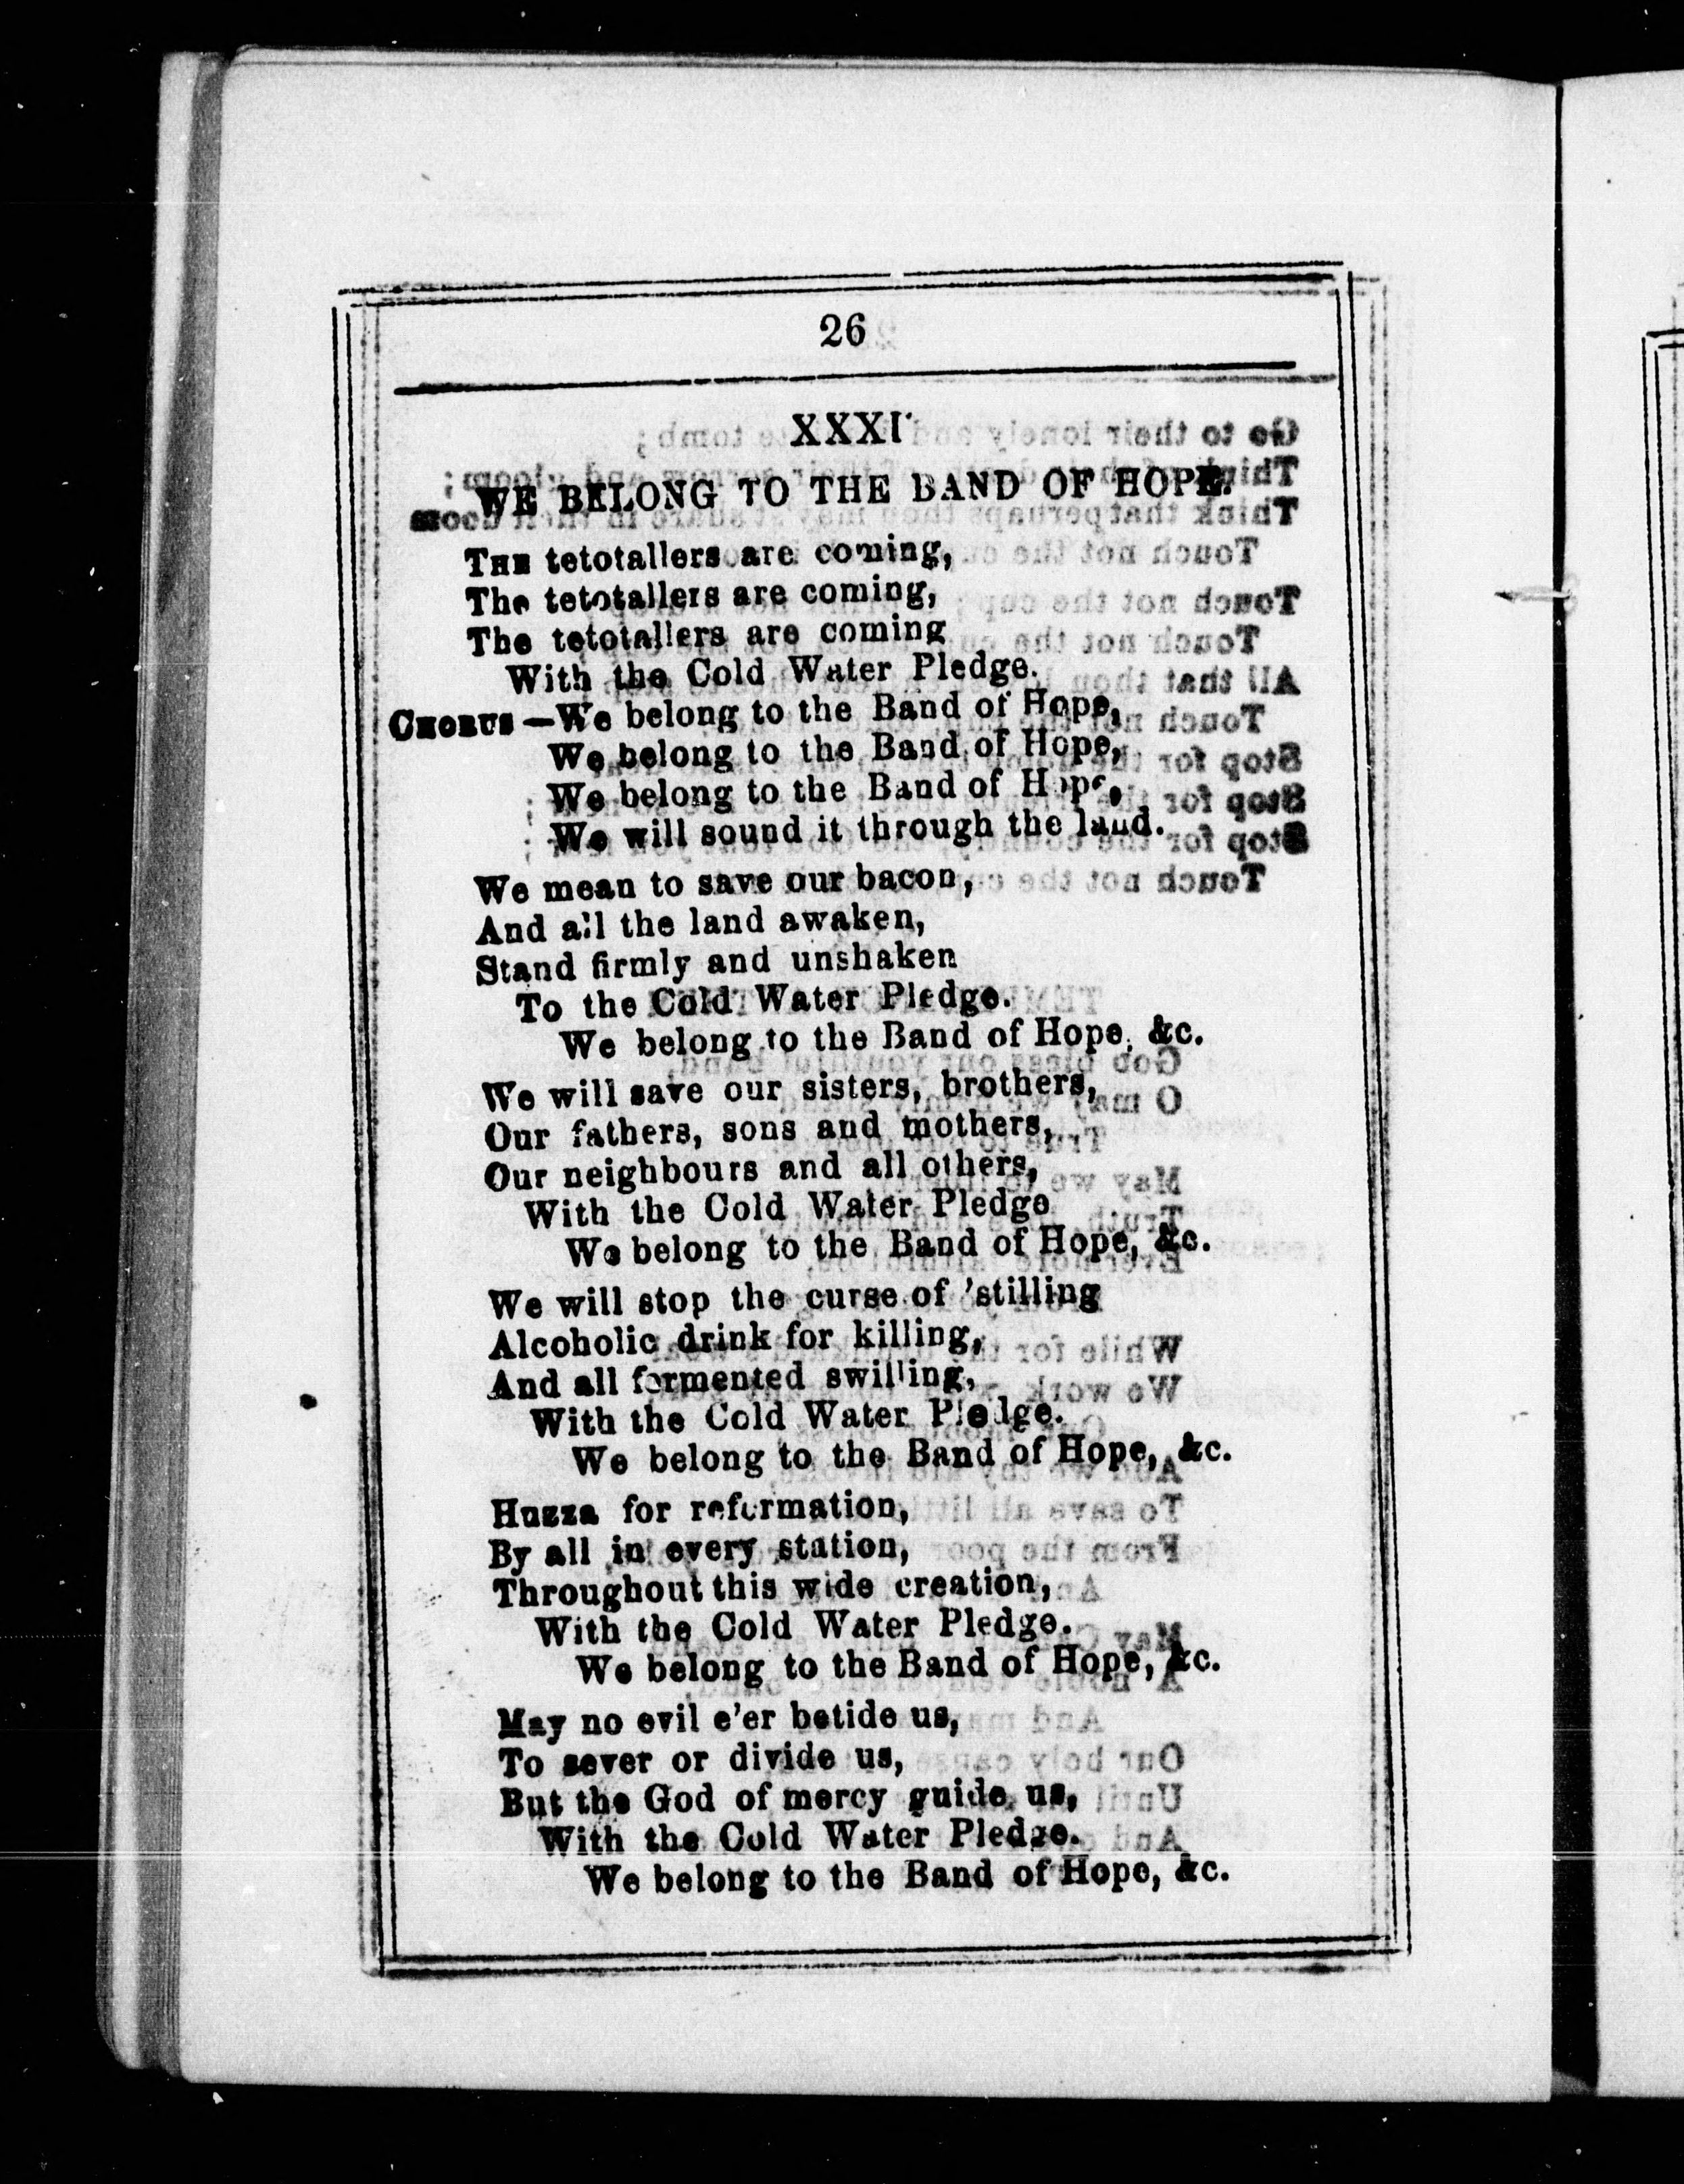 26
XXXI.
WE BELONG TO THE BAND OF HOPE.
THE tetotallers are coming,
The tetotallers are coming,
The tetotallers are coming
With the Cold Water Pledge.
CHORUS—We belong to the Band of Hope,
We belong to the Band of Hope,
We belong to the Band of Hope,
We will sound it through the land.
We mean to save our bacon,
And all the land awaken,
Stand firmly and unshaken
To the Cold Water Pledge.
We belong to the Band of Hope, &c.
We will save our sisters, brothers,
Our fathers, sons and mothers,
Our neighbours and all others,
With the Cold Water Pledge
We belong to the Band of Hope, &c.
We will stop the curse of 'stilling
Alcoholic drink for killing,
And all fermented swilling,
With the Cold Water Pledge.
We belong to the Band of Hope, &c.
Huzza for reformation,
By all in every station,
Throughout this wide creation,
With the Cold Water Pledge.
We belong to the Band of Hope, &c.
May no evil e'er betide us,
To sever or divide us,
But the God of mercy guide us,
With the Cold Water Pledge.
We belong to the Band of Hope, &c.